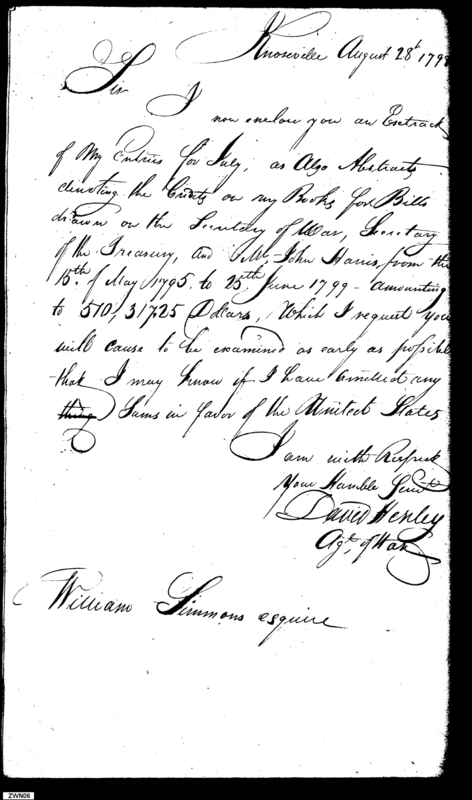 Knoxville August 28th 1799
Sir
I now enclose you an Extract
of My Entries for July, as Also Abstracts
denoting the Credits on my Books for Bills
drawn on the Secretary of War, Secretary
of the Treasury, and Mr. John Harris, from the
15th of May 1795. to 25th June 1799 - amounting
to 510,317.25 Dollars, Which I request you
will cause to be examined as early as possible
that I may know if I have omitted any
thing Sums in favor of the United States
I am with Respect
Your Humble Servt
David Henley
Agt, of War
William Simmons esquire
ZWN06